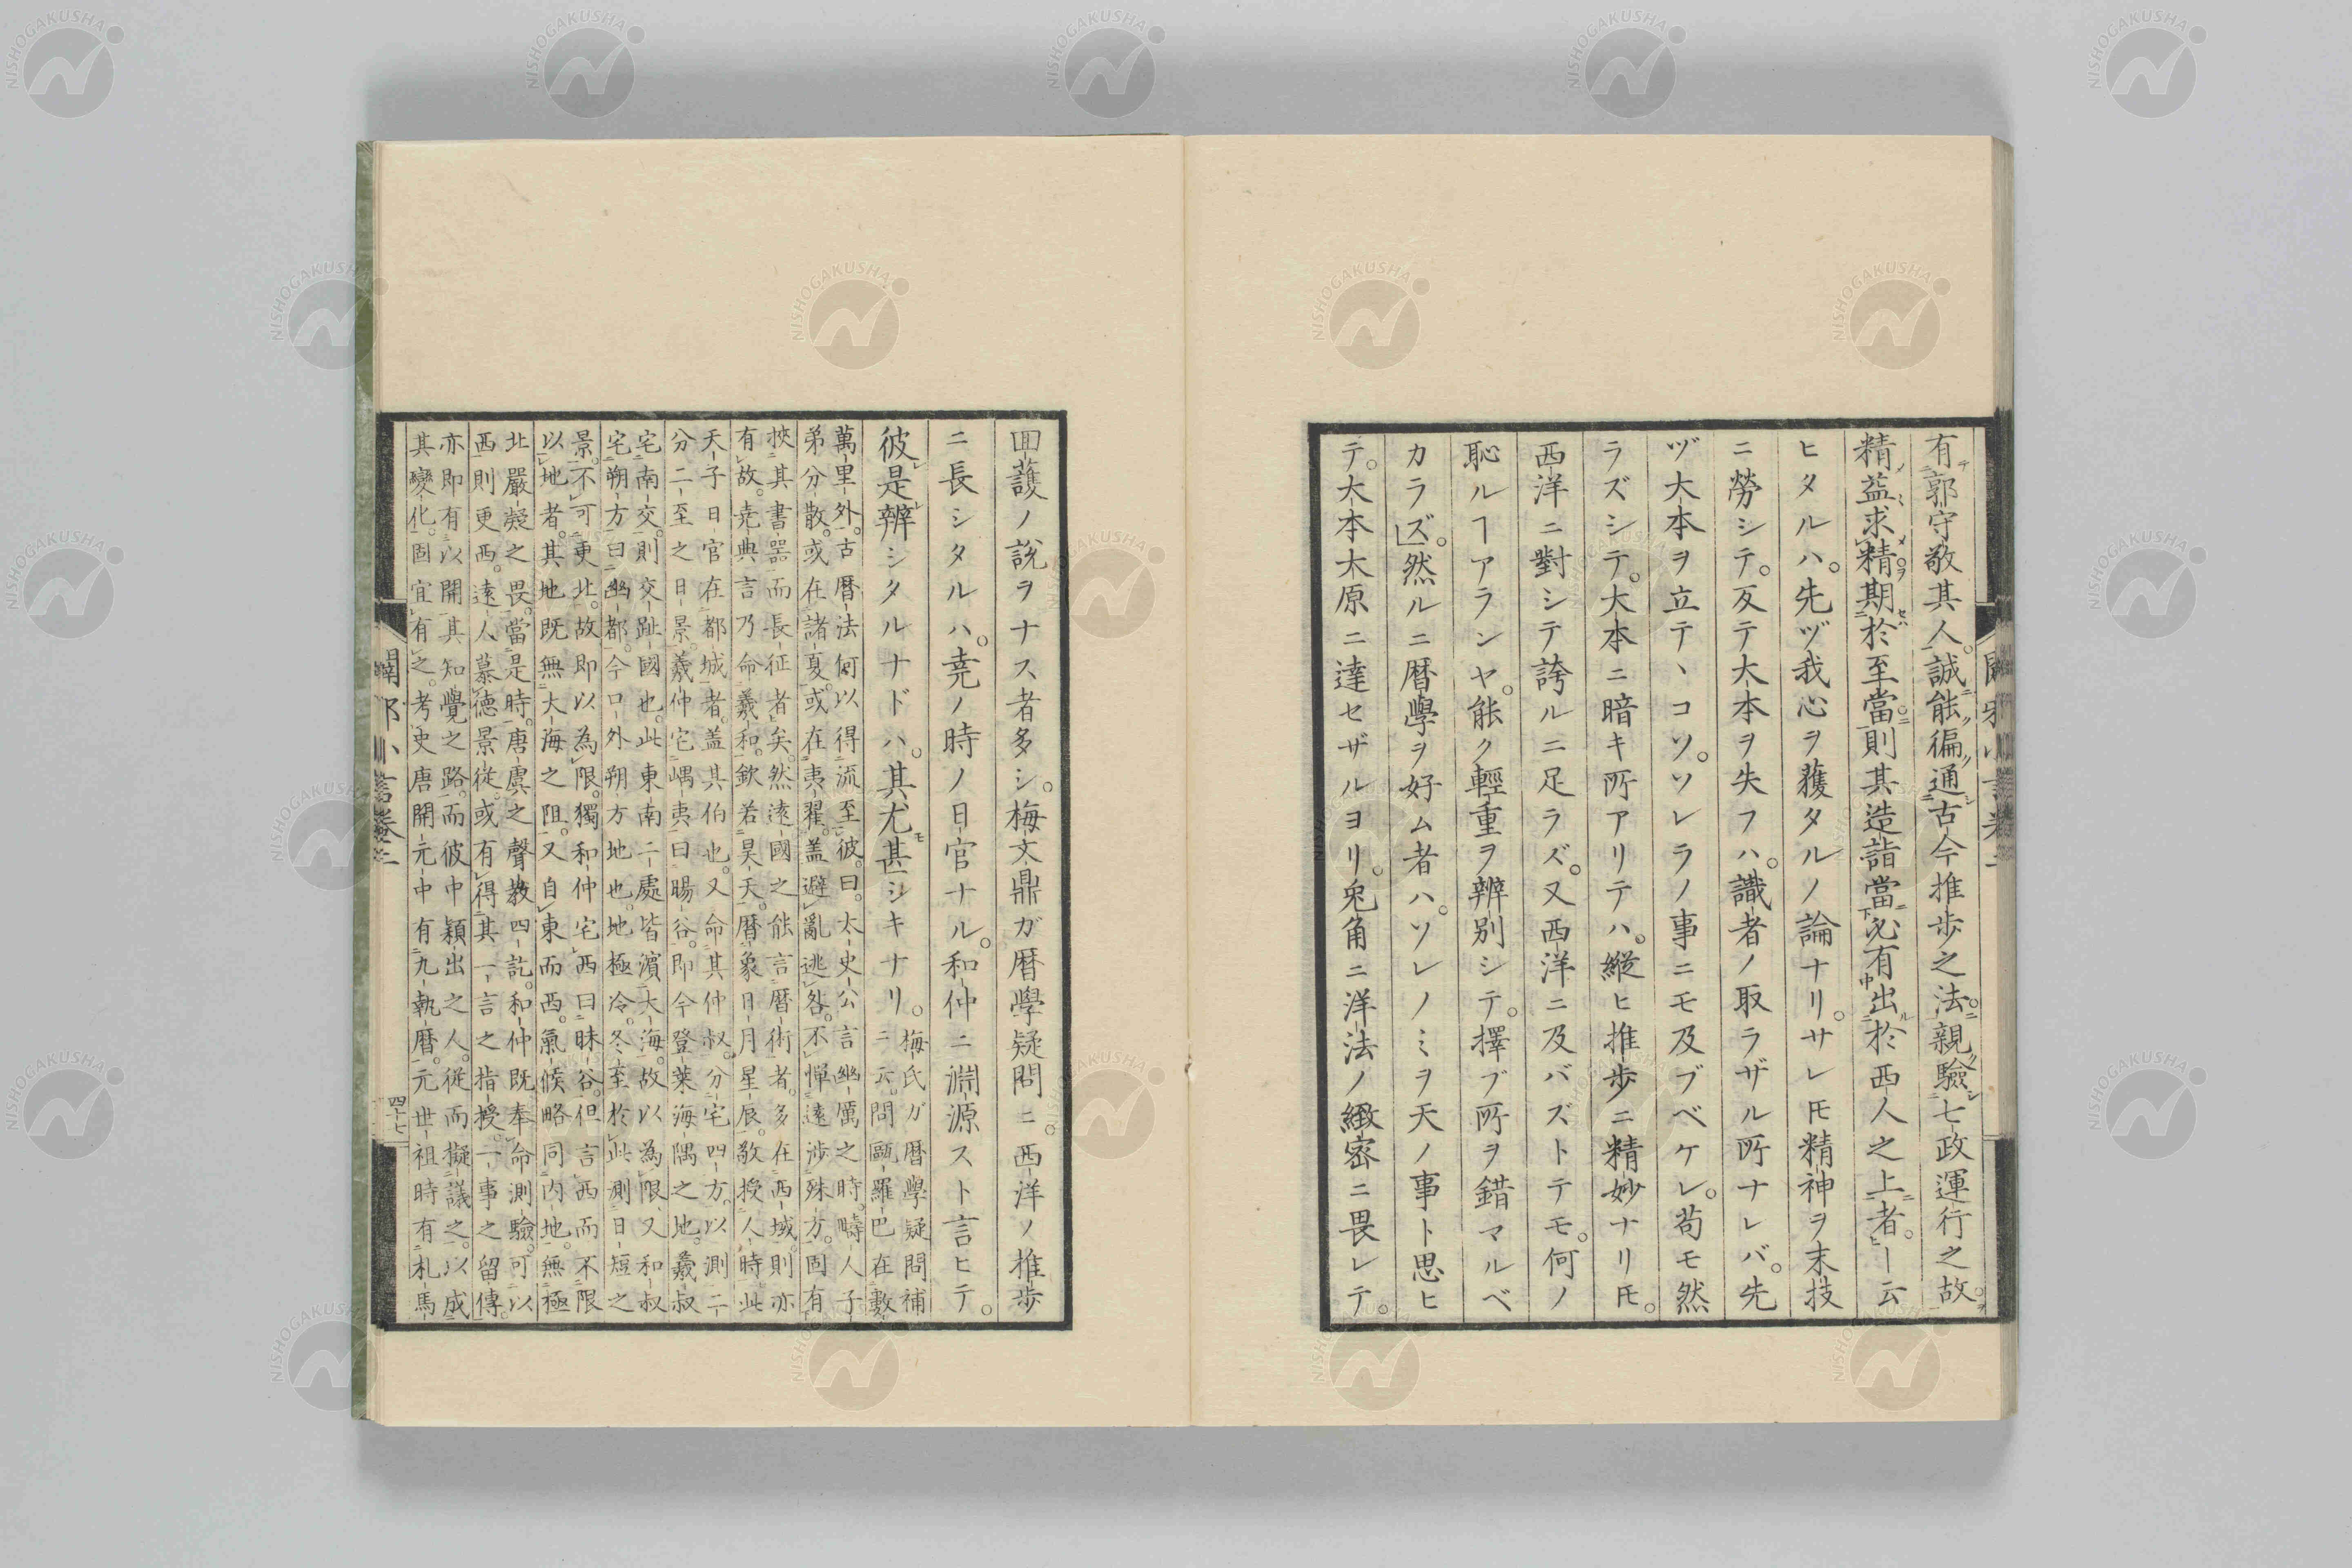 有郭守敬其人。誠能徧通古今推歩之法。親驗七政運行之故。
精益求精期於至當。則其造詣當必有出於西人之上者。ト云
ヒタルハ。先ヅ我心ヲ獲タルノ論ナリ。サレ𪜈精神ヲ末技
ニ勞シテ。反テ大本ヲ失フハ。識者ノ取ラザル所ナレバ。先
ヅ大本ヲ立テヽコソ。ソレラノ事ニモ及ブベケレ。苟モ然
ラズシテ。大本ニ暗キ所アリテハ。縱ヒ推歩ニ精妙ナリ𪜈。
西洋ニ對シテ誇ルニ足ラズ。又西洋ニ及バズトテモ。何ノ
恥ルヿアランヤ。能ク輕重ヲ辨別シテ。擇ブ所ヲ錯マルベ
カラズ。然ルニ暦學ヲ好ム者ハ。ソレノミヲ天ノ事ト思ヒ
テ。大本大原ニ達セザルヨリ。兎角ニ洋法ノ緻密ニ畏レテ。
回護ノ說ヲナス者多シ。梅文鼎ガ暦學疑問ニ。西洋ノ推歩
ニ長シタルハ。堯ノ時ノ日官ナル。和仲ニ淵源スト言ヒテ。
彼是辨シタルナドハ。其尤甚シキナリ。
梅氏ガ暦學疑問補
ニ云。問歐羅巴在數
萬里外。古暦法何以得流至彼。曰。太史公言幽厲之時。疇人子
弟分散。或在諸夏。或在夷翟。蓋避亂逃咎。不憚遠涉殊方。固有
挾其書器而長征者矣。然遠國之能言暦術者。多在西域。則亦
有故。堯典言乃命羲和。欽若昊天。暦象日月星辰。敬授人時。此
天子日官在都城者。蓋其伯也。又命其仲叔。分宅四方。以測二
分二至之日景。羲仲宅嵎夷曰暘谷。即今登萊海隅之地。羲叔
宅南交。則交趾國也。此東南二處皆濱大海。故以為限。又和叔
宅朔方曰幽都。今口外朔方地也。地極冷。冬至於此測日短之
景。不可更北。故即以為限。獨和仲宅西曰昧谷。但言西而不限
以地者。其地既無大海之阻。又自東而西。氣候略同内地。無極
北嚴凝之畏。當是時。唐虞之聲教四訖。和仲既奉命測驗。可以
西則更西。遠人慕德景從。或有得其一言之指授。一事之留傳。
亦即有以開其知覺之路。而彼中穎出之人。從而擬議之。以成
其變化。固宜有之。考史唐開元中有九執暦。元世祖時有札馬
四十七